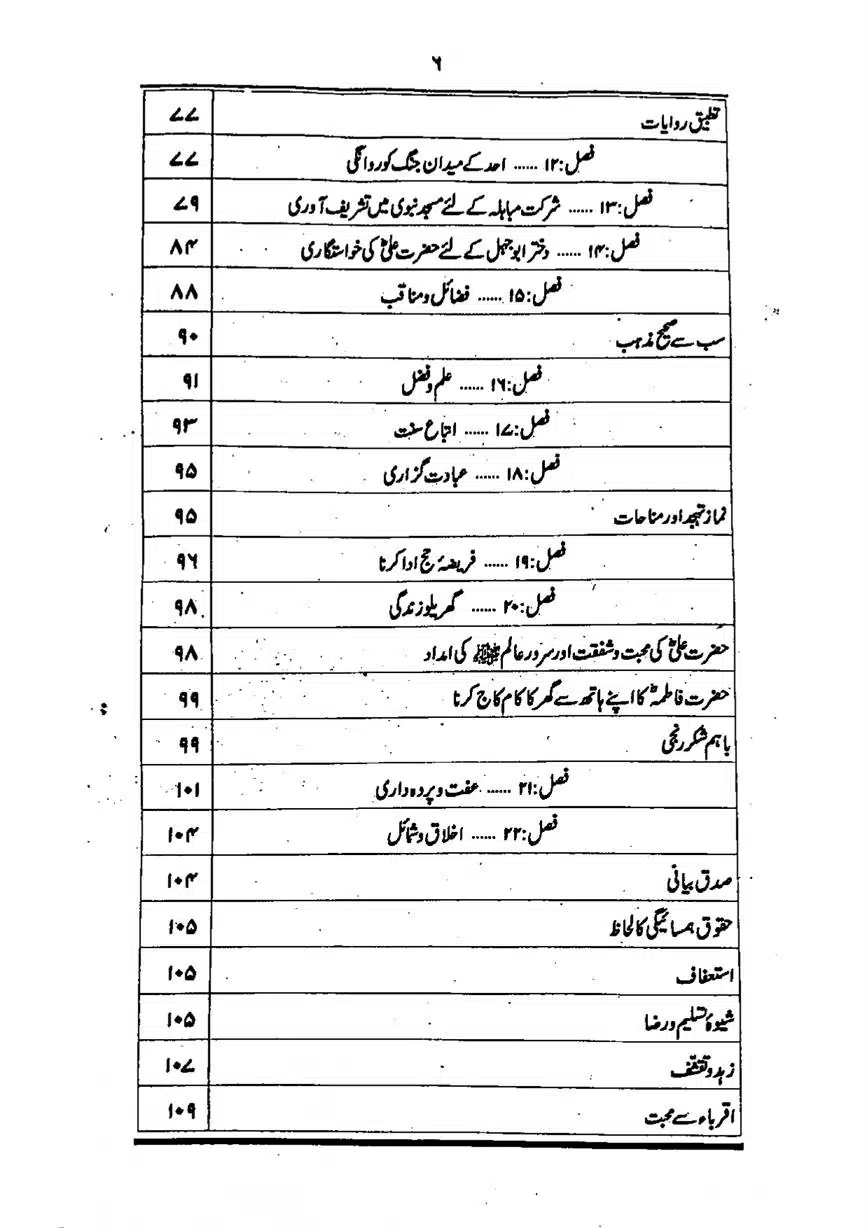 ۶
تطبیق روایات ۷۷
فصل:۱۲ ...... احد کے میدان جنگ کو روانگی ۷۷
فصل:۱۳ ...... شرکت مباہلہ کے لئے مسجد نبوی میں تشریف آوری ۷۹
فصل:۱۴ ...... دختر ابوجہل کے لئے حضرت علیؓ کی خواستگاری ۸۴
فصل:۱۵ ...... فضائل و مناقب ۸۸
سب سے صحیح مذہب ۹۰
فصل:۱۶ ...... علم و فضل ۹۱
فصل:۱۷ ...... اتباع سنت ۹۳
فصل:۱۸ ...... عبادت گزاری ۹۵
نماز تہجد اور مناحات ۹۵
فصل:۱۹ ...... فریضۂ حج ادا کرنا ۹۶
فصل:۲۰ ...... گھریلو زندگی ۹۸
حضرت علیؓ کی محبت و شفقت اور سرور عالم ﷺ کی امداد ۹۸
حضرت فاطمہؓ کا اپنے ہاتھ سے گھر کا کام کاج کرنا ۹۹
باہم شکر رنجی ۹۹
فصل:۲۱ ...... عفت و پردہ داری ۱۰۱
فصل:۲۲ ...... اخلاق و شمائل ۱۰۴
صدق بیانی ۱۰۴
حقوق ہمسائیگی کا لحاظ ۱۰۵
استعفاف ۱۰۵
شیوۂ تسلیم و رضا ۱۰۵
زہد و تقشف ۱۰۷
اقرباء سے محبت ۱۰۹